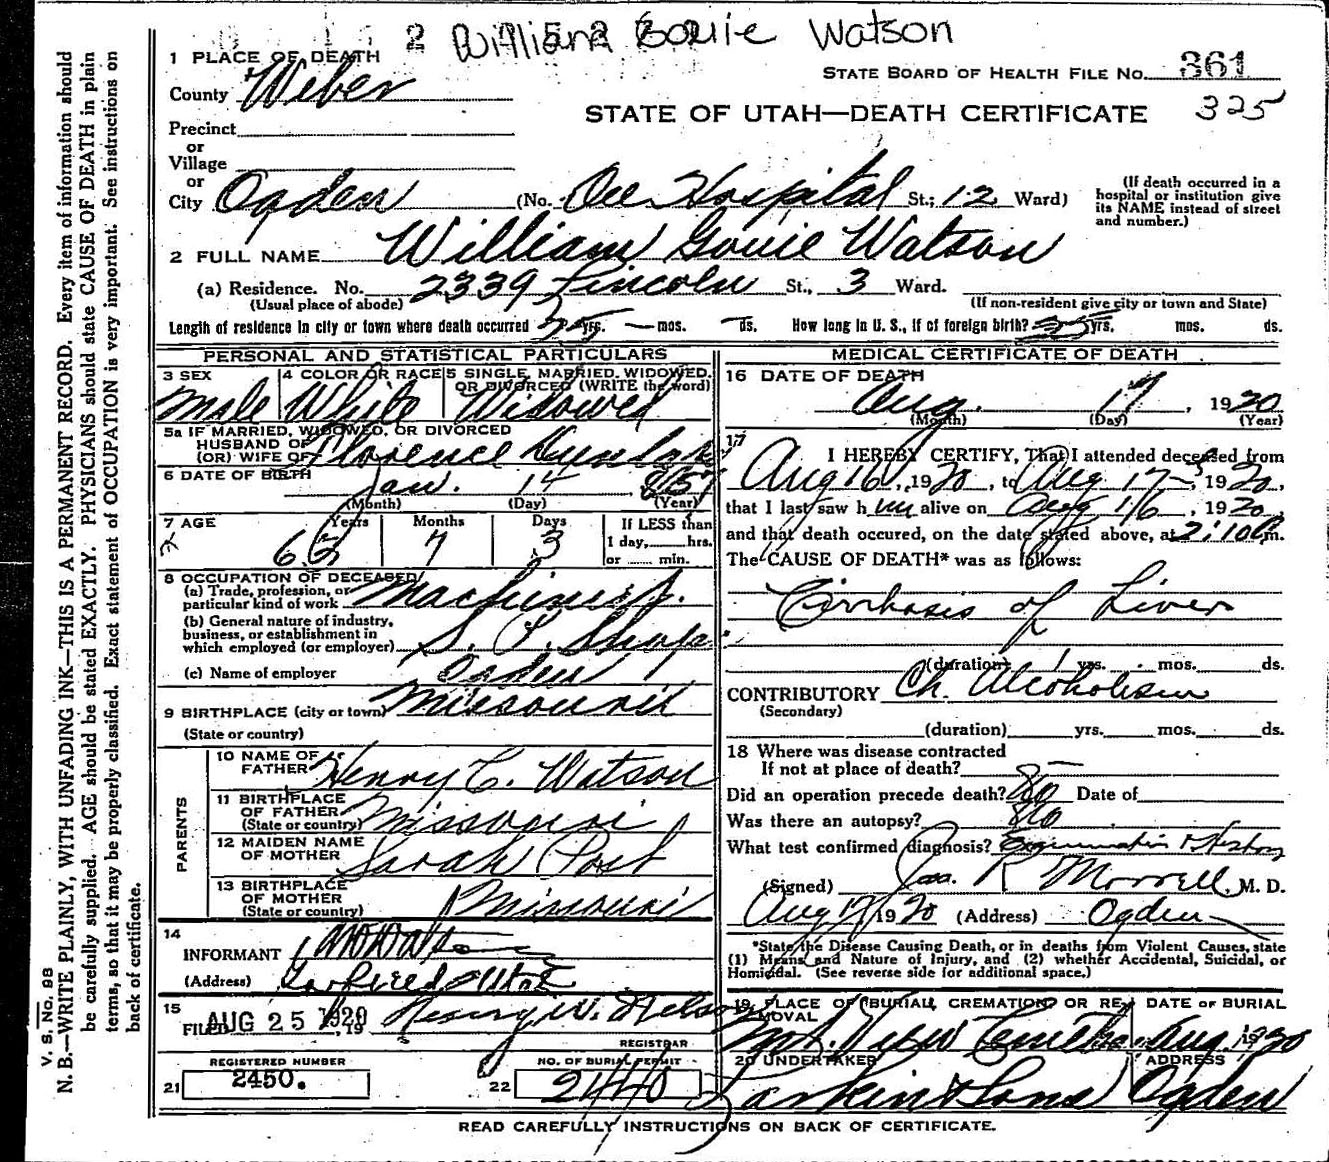 William Gouie Watson
1 PLACE OF DEATH
STATE BOARD OF HEALTH FILE NO. 361
County Weber
STATE OF UTAH—DEATH CERTIFICATE 325
Precinct
or
Village
or
City Ogden (No. Dee Hospital St.; 12 Ward)
(If death occurred in a hospital or institution give its NAME instead of street and number.)
2 FULL NAME William Gouie Watson
(a) Residence. No. 2339 Lincoln St., 3 Ward.
(Usual place of abode) (If non-resident give city or town and State)
Length of residence in city or town where death occurred 35 yrs. — mos. — ds. How long in U. S., if of foreign birth? yrs. mos. ds.
PERSONAL AND STATISTICAL PARTICULARS
3 SEX 4 COLOR OR RACE 5 SINGLE, MARRIED, WIDOWED, OR DIVORCED (WRITE the word)
Male White Widowed
5a IF MARRIED, WIDOWED, OR DIVORCED
HUSBAND OF
(OR) WIFE OF Florence Dunlap
6 DATE OF BIRTH Jan. 14, 1857
(Month) (Day) (Year)
7 AGE Years Months Days If LESS than
1 day, hrs.
or min.
63 7 3
8 OCCUPATION OF DECEASED
(a) Trade, profession, or particular kind of work Machinist.
(b) General nature of industry, business, or establishment in which employed (or employer) S. P. Shops
(c) Name of employer Ogden
9 BIRTHPLACE (city or town) Missouri
(State or country)
PARENTS
10 NAME OF FATHER Henry C. Watson
11 BIRTHPLACE OF FATHER (State or country) Missouri
12 MAIDEN NAME OF MOTHER Sarah Post
13 BIRTHPLACE OF MOTHER (State or country) Missouri
14
INFORMANT
(Address) Utah
15
FILED AUG 25 1920, 19
REGISTRAR
REGISTERED NUMBER NO. OF BURIAL PERMIT
21 2450. 22 2440
MEDICAL CERTIFICATE OF DEATH
16 DATE OF DEATH
Aug. 17, 1920
(Month) (Day) (Year)
17
I HEREBY CERTIFY, That I attended deceased from
Aug 16, 1920, to Aug 17, 1920,
that I last saw him alive on Aug 16, 1920,
and that death occured, on the date stated above, at 2:10 m.
The CAUSE OF DEATH* was as follows:
Cirrhosis of Liver
(duration) 1 yrs. mos. ds.
CONTRIBUTORY Ch. Alcoholism
(Secondary)
(duration) yrs. mos. ds.
18 Where was disease contracted
If not at place of death? —
Did an operation precede death? No Date of
Was there an autopsy? No
What test confirmed diagnosis? Examination & History
(Signed) Jos. R Morrell, M. D.
Aug 17, 1920 (Address) Ogden
*State the Disease Causing Death, or in deaths from Violent Causes, state
(1) Means and Nature of Injury, and (2) whether Accidental, Suicidal, or
Homicidal. (See reverse side for additional space.)
19 PLACE OF BURIAL, CREMATION OR REMOVAL DATE OF BURIAL
Mt. View Aug. 1920
20 UNDERTAKER ADDRESS
Larkin & Sons Ogden
READ CAREFULLY INSTRUCTIONS ON BACK OF CERTIFICATE.
V. S. No. 98
N. B.—WRITE PLAINLY, WITH UNFADING INK—THIS IS A PERMANENT RECORD. Every item of information should
be carefully supplied. AGE should be stated EXACTLY. PHYSICIANS should state CAUSE OF DEATH in plain
terms, so that it may be properly classified. Exact statement of OCCUPATION is very important. See instructions on
back of certificate.